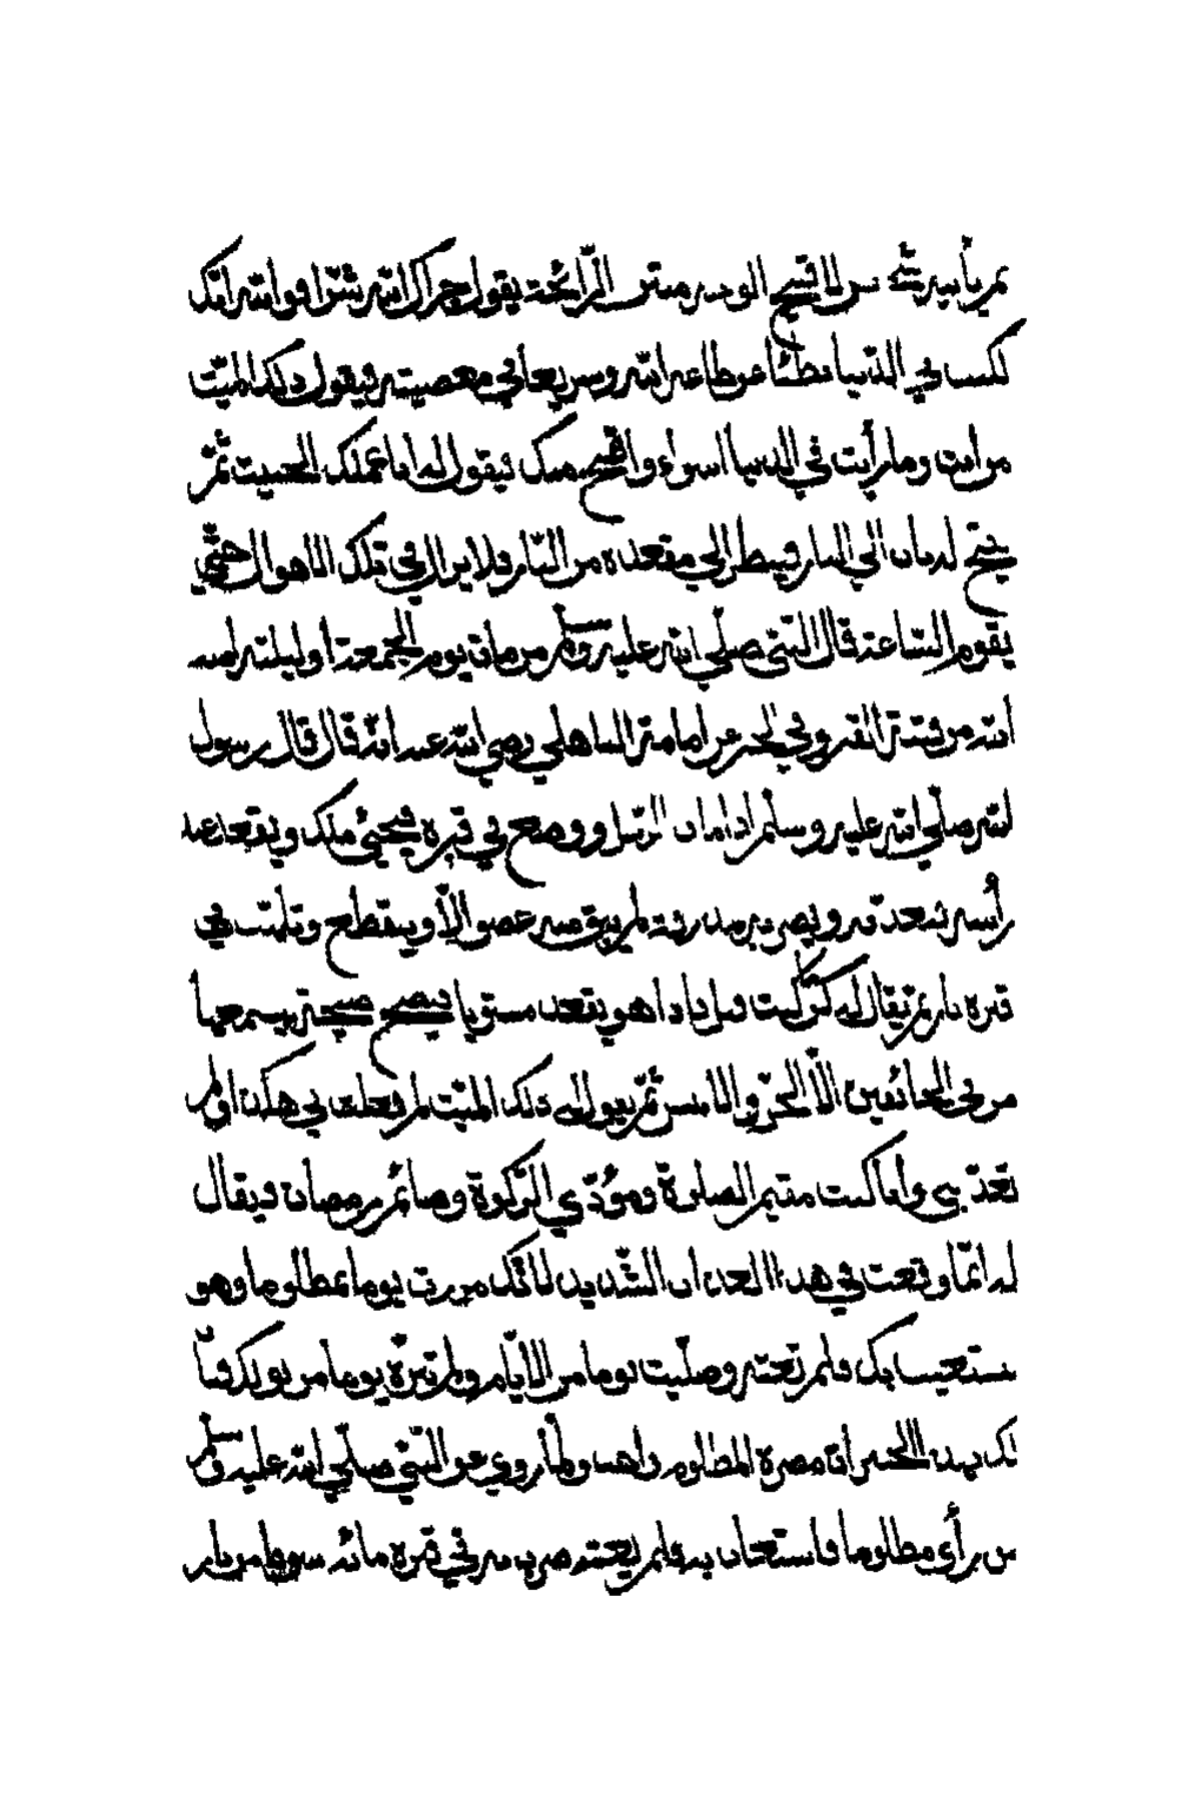 ثم يأتيه شخص لا قبيح الوجه منتن الرائحة يقول جزاك الله شرّا فوالله انك
لكنت في الدنيا بطئا عن طاعة الله وسريعا في معصيته فيقول ذلك الميّت
من انت وما رأيت في الدنيا اسواء واقبح منك فيقول له انا عملك الخبيث ثمّ
يفتح له باب الي النار فينظر الي مقعده من النار فلا يزال في تلك الاهوال حتّي
يقوم السّاعة قال النبّى صلّي الله عليه وسلّم من مات يوم الجمعة او ليلته امنه
الله من فتنة القبر وفي الخبر عن امامة الباهلي رضي الله عنه انّه قال قال رسول
الله صلّي الله عليه وسلّم اذا مات الرّجل ووضع في قبره فيجيئ ملك ويقعد عند
رأسه فيعذّبه ويضربه ضربة لم يبق منه عضو الاّ وينقطع وتلتهب في
قبره نار ثم يقال له قم فاذا هو يقعد مستويا فيصيح صيحة يسمعها
من في الخافقين الّا الجنّ والانس ثمّ يقول له ذلك الميّت لم فعلت بي هكذا ولم
تعذّبني وأنا كنت مقيم الصلوة ومؤدّي الزّكوة وصائم رمضان فيقال
له انّما وقعت في هذا العذاب الشّديد لانّك مررت يوما بمظلوم وهو
يستغيث بك فلم تغثه وصلّيت يوما من الايّام ولم تنزّه يوما من بولك فبا
لك بهذا الخبر انّ نصرة المظلوم واجب ولما روي عن النبّي صلّي الله عليه وسلّم
من رأى مظلوما فاستغاث به فلم يغثه ضرب في قبره مائة سوط من نار